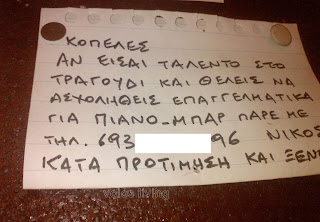 ΚΟΠΕΛΕΣ
ΑΝ ΕΙΣΑΙ ΤΑΛΕΝΤΟ ΣΤΟ
ΤΡΑΓΟΥΔΙ ΚΑΙ ΘΕΛΕΙΣ ΝΑ
ΑΣΥΟΛΙΘΕΙΣ ΕΠΑΓΓΕΛΜΑΤΙΚΑ
ΓΙΑ ΠΙΑΝΟ-ΜΠΑΡ ΠΑΡΕ ΜΕ
ΤΗΛ. 693 96 ΝΙΚΟΣ
ΚΑΤΑ ΠΡΟΤΙΜΗΣΗ ΚΑΙ ΞΕΝ
volos living